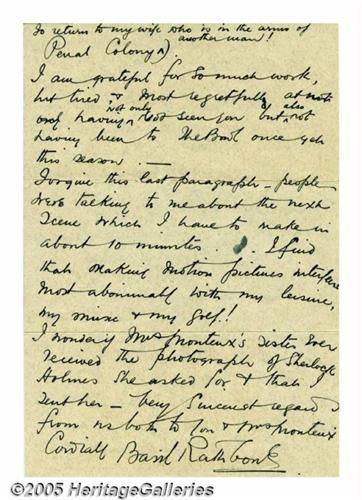 To return to my wife who is in the arms of
another man!
Penal Colony)
I am grateful for so much work,
but tired & most regretfully at not
only having not only not seen you but also not
having been to The Bowl once yet
this season —
Forgive this last paragraph — people
were talking to me about the next
scene which I have to make in
about 10 minutes. . I find
that making motion pictures interfere
most abominably with my leisure,
my music & my golf!
I wonder if Mrs Monteux's sister ever
received the photograph of Sherlock
Holmes she asked for & that I
sent her — Very sincerest regards
from us both to you & Mrs Monteux
Cordially Basil Rathbone
©2005 HeritageGalleries